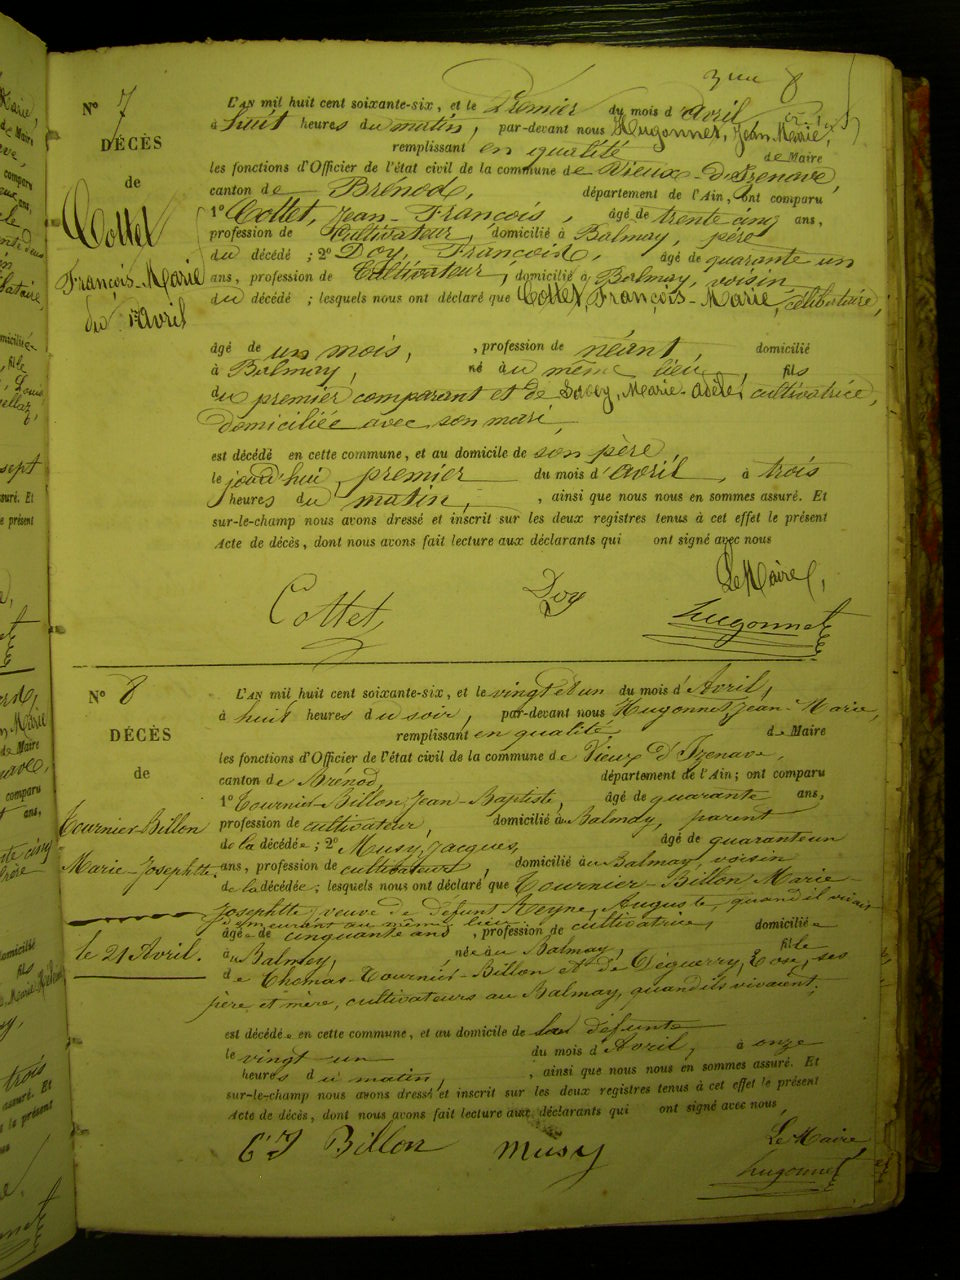 3me 8
N° 7
DÉCÈS
de
Cottet
François-Marie
du 1er Avril
L'AN mil huit cent soixante-six, et le Premier du mois d'avril
à huit heures du matin, par-devant nous Hugonnet, Jean-Marie,
remplissant en qualité de Maire
les fonctions d'Officier de l'état civil de la commune de Vieux-d'Izenave,
canton de Brénod, département de l'Ain, ont comparu
1° Cottet, Jean-François, âgé de trente cinq ans,
profession de Cultivateur domicilié à Balmay, père
du décédé ; 2° Doy, François, âgé de quarante un
ans, profession de Cultivateur, domicilié à Balmay, voisin
du décédé ; lesquels nous ont déclaré que Cottet, François-Marie, célibataire,
âgé de un mois, , profession de néant, domicilié
à Balmay, né au même lieu, fils
du premier comparant et de Savey, Marie-adèle, cultivatrice,
domiciliée avec son mari
est décédé en cette commune, et au domicile de son père
le jourd'hui, premier du mois d'avril, à trois
heures du matin, , ainsi que nous nous en sommes assuré. Et
sur-le-champ nous avons dressé et inscrit sur les deux registres tenus à cet effet le présent
Acte de décès, dont nous avons fait lecture aux déclarants qui ont signé avec nous
Le Maire,
Cottet Doy Hugonnet
N° 8
DÉCÈS
de
Tournier-Billon
Marie-Josephtte
le 21 Avril.
L'AN mil huit cent soixante-six, et le vingt et un du mois d'Avril,
à huit heures du soir, par-devant nous Hugonnet, Jean-Marie,
remplissant en qualité de Maire
les fonctions d'Officier de l'état civil de la commune de Vieux d'Izenave,
canton de Brénod département de l'Ain ; ont comparu
1° Tournier-Billon Jean-Baptiste, âgé de quarante ans,
profession de cultivateur, domicilié au Balmay, parent
de la décédée ; 2° Musy, Jacques, âgé de quarante un
ans, profession de cultivateur, domicilié au Balmay, voisin
de la décédée ; lesquels nous ont déclaré que Tournier-Billon Marie-
Josephtte, veuve de défunt Reyne, Auguste, quand il vivait
demeurant au même lieu
âgée de cinquante ans , profession de cultivatrice, domiciliée
au Balmay, née au Balmay, fille
de Thomas-Tournier-Billon et de Déguerry, Rose, ses
père et mère, cultivateurs au Balmay, quand ils vivaient,
est décédée en cette commune, et au domicile de la défunte
le vingt un du mois d'Avril, à onze
heures du matin, , ainsi que nous nous en sommes assuré. Et
sur-le-champ nous avons dressé et inscrit sur les deux registres tenus à cet effet le présent
Acte de décès, dont nous avons fait lecture aux déclarants qui ont signé avec nous,
Le Maire
Billon musy Hugonnet